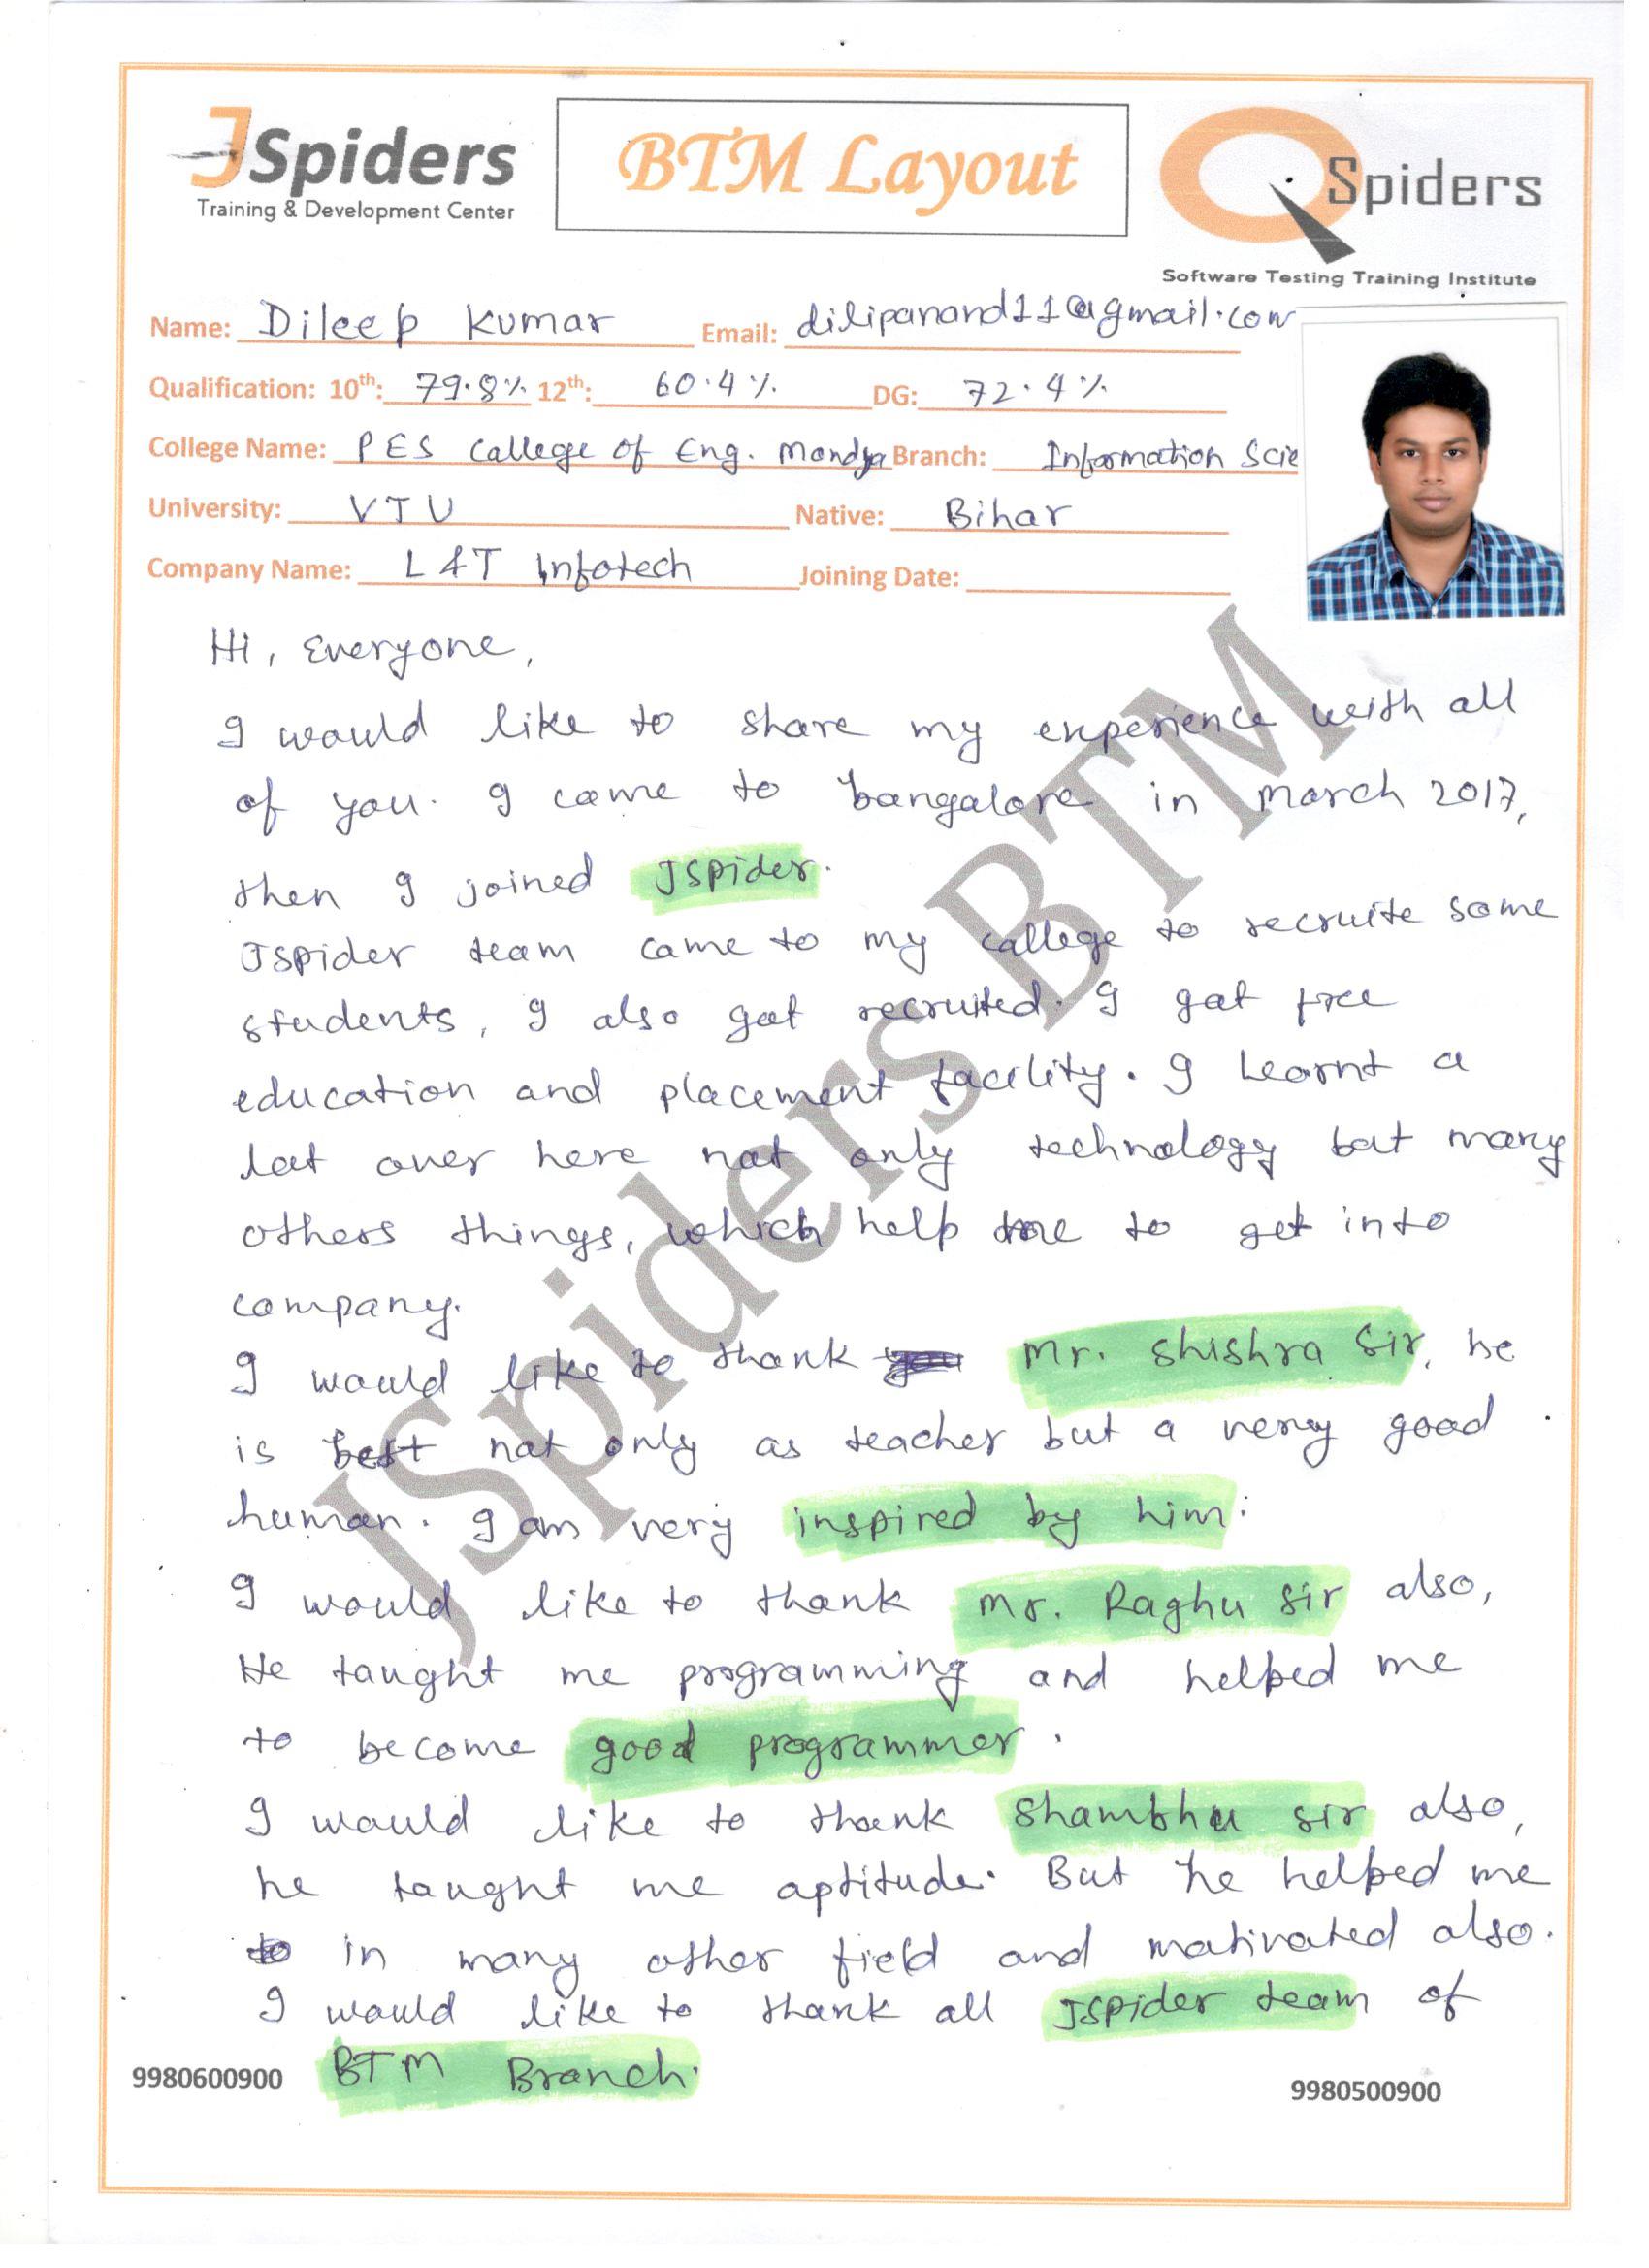 JSpiders
Training & Development Center
BTM Layout
QSpiders
Software Testing Training Institute
Name: Dileep Kumar Email: dilipanand11@gmail.com
Qualification: 10th: 79.8% 12th: 60.4% DG: 72.4%
College Name: PES College of Eng. Mandya Branch: Information Scie
University: VTU Native: Bihar
Company Name: L&T Infotech Joining Date:
Hi, Everyone,
I would like to share my experience with all
of you. I came to bangalore in march 2017,
then I joined JSpider.
JSpider team came to my college to recruite some
students, I also got recruited. I got free
education and placement facility. I learnt a
lot over here not only technology but many
others things, which help me to get into
company.
I would like to thank Mr. Shishra Sir, he
is best not only as teacher but a very good
human. I am very inspired by him.
I would like to thank Mr. Raghu Sir also,
He taught me programming and helped me
to become good programmer.
I would like to thank Shambhu sir also,
he taught me aptitude. But he helped me
in many other field and motivated also.
I would like to thank all JSpider team of
BTM Branch.
9980600900
9980500900
JSpiders BTM